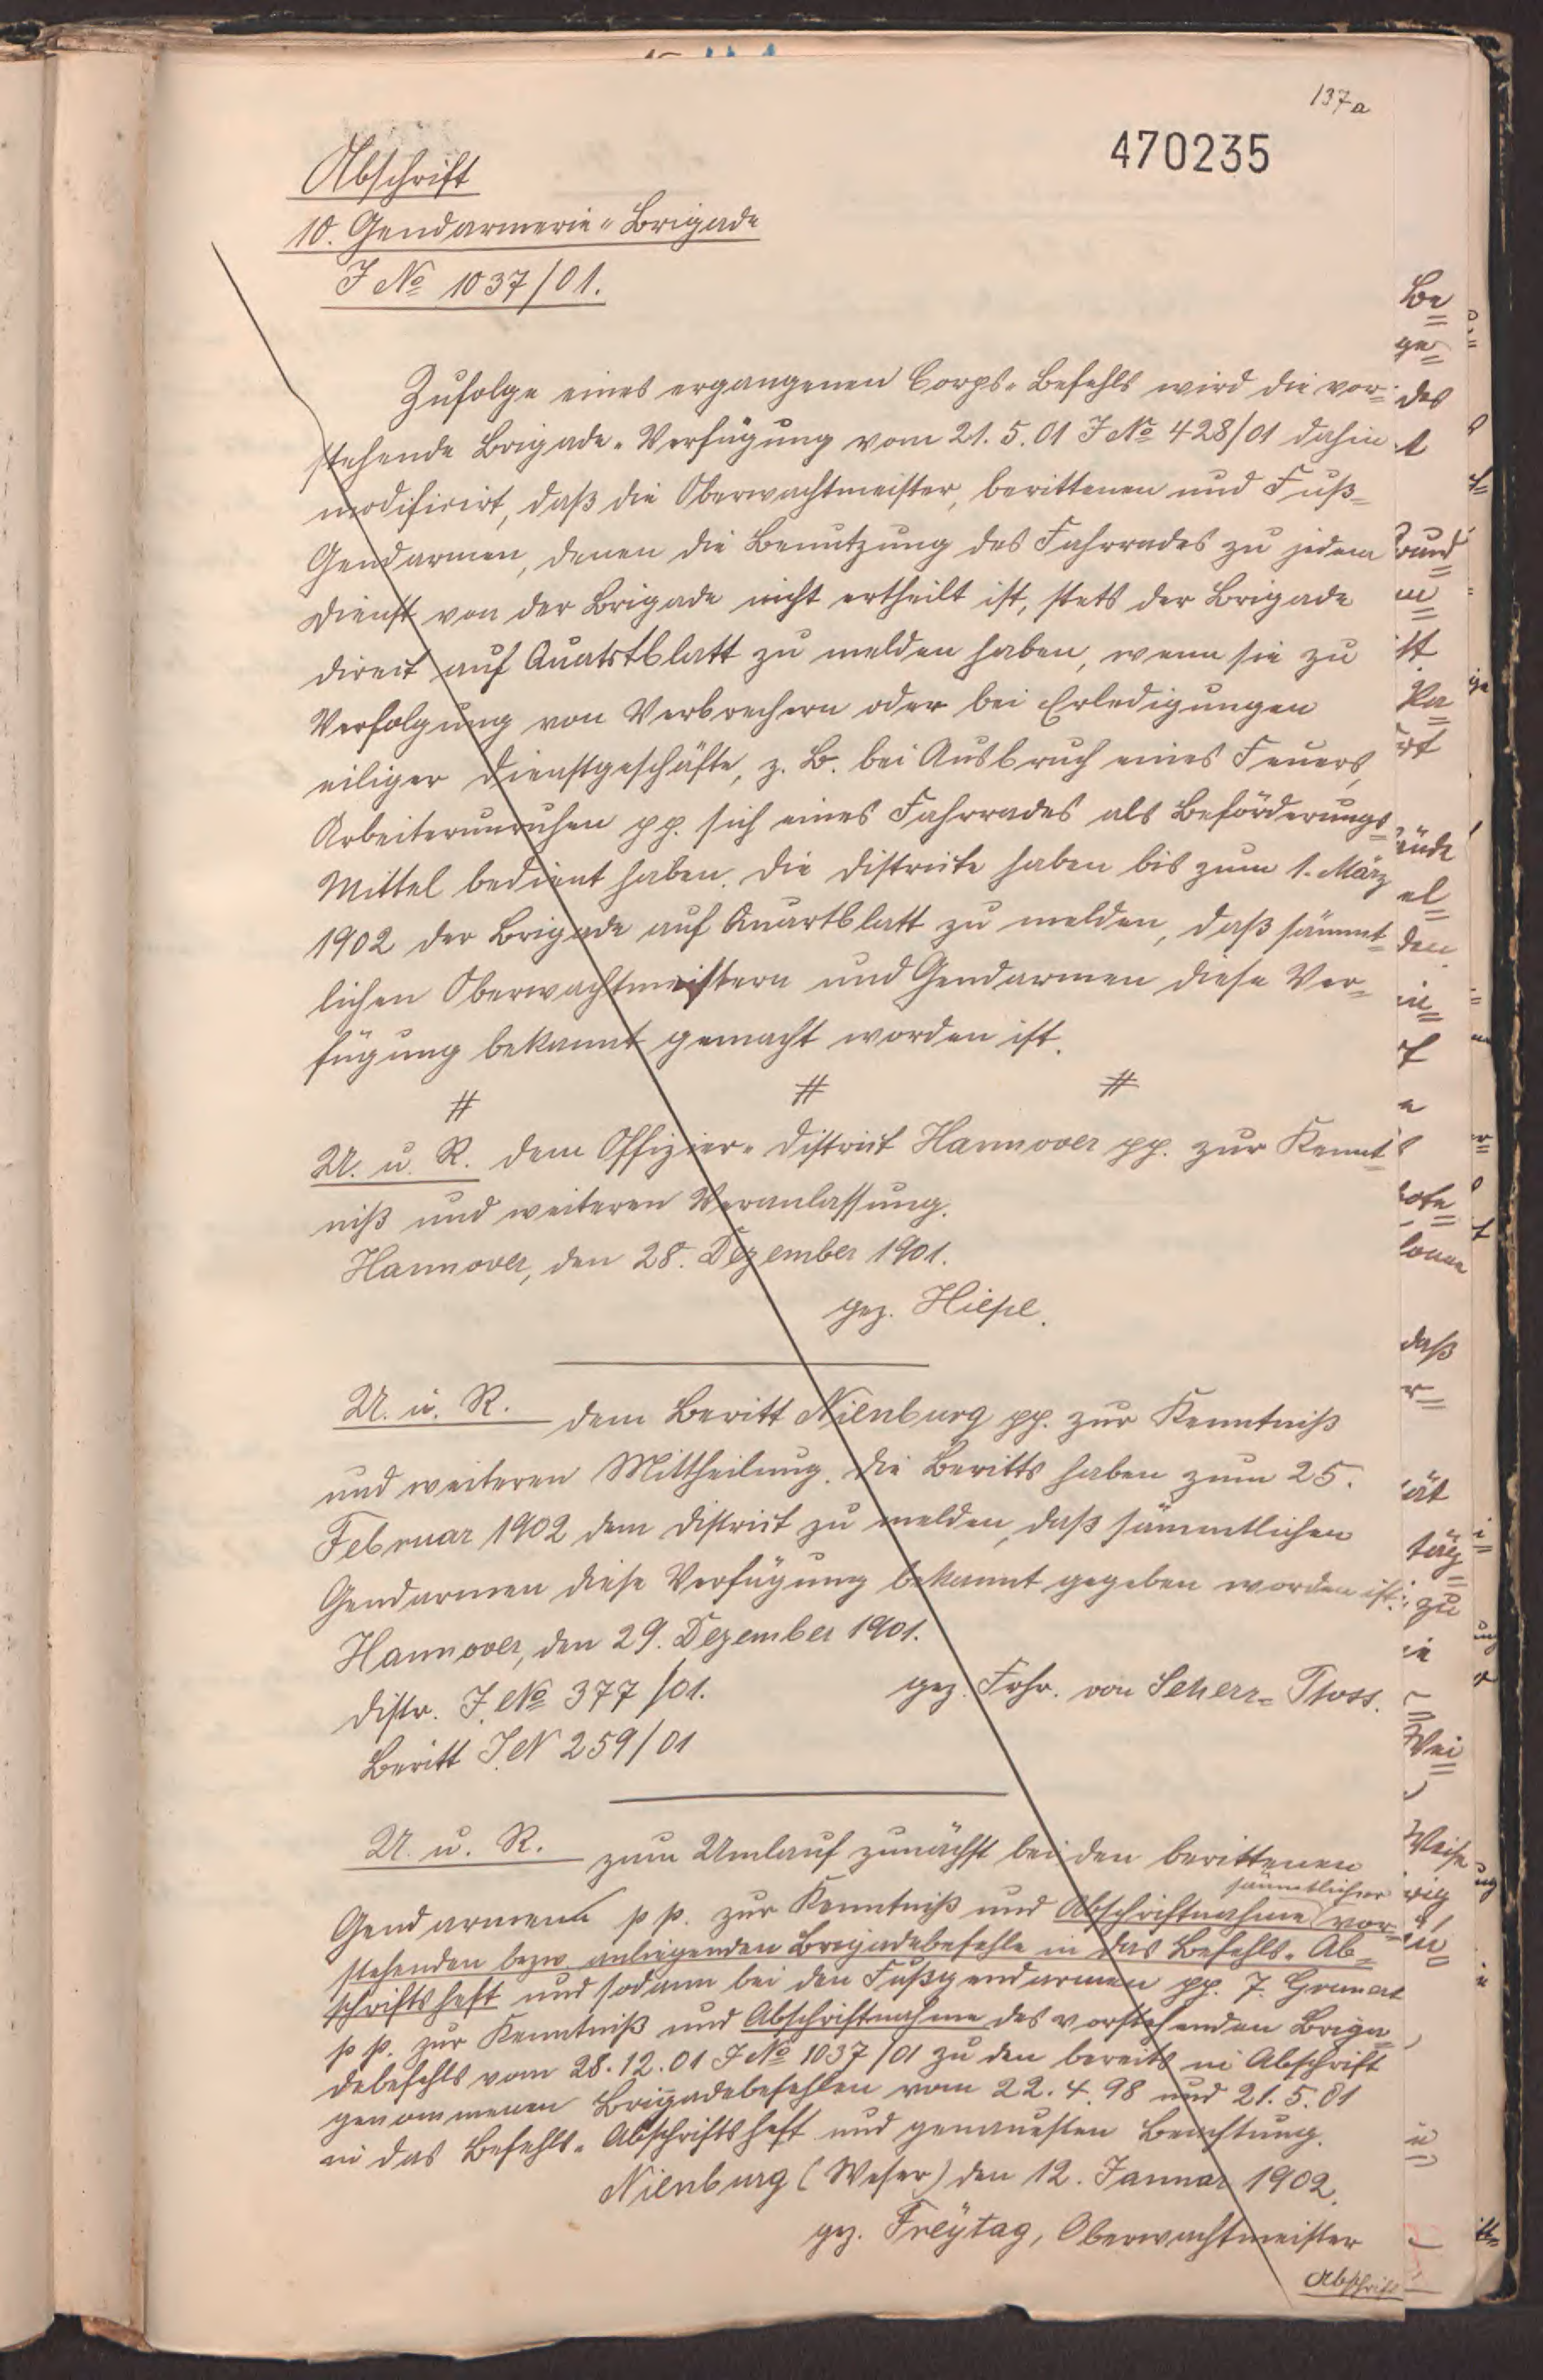 137a
470235
Abschrift
10. Gendarmerie-Brigade
J № 1037/01.
Zufolge eines ergangenen Corps-Befehls wird die vor-
stehende Brigade-Verfügung vom 21.5.01 J № 428/01 dahin
modificirt, daß die Oberwachtmeister, berittenen und Fuß-
Gendarmen, denen die Benutzung des Fahrrades zu jedem
Dienst von der Brigade nicht ertheilt ist, stets der Brigade
direct auf Quatstblatt zu melden haben, wenn sie zu
Verfolgung von Verbrechern oder bei Erledigungen
eiliger Dienstgeschäfte, z. B. bei Ausbruch eines Feuers,
Arbeiterunruhen pp. sich eines Fahrrades als Beförderungs-
Mittel bedient haben. Die Districte haben bis zum 1. März
1902 der Brigade auf Quartblatt zu melden, daß sämmt-
lichen Oberwachtmeistern und Gendarmen diese Ver-
fügung bekannt gemacht worden ist.
# # #
U. u. R. dem Offizier-District Hannover pp. zur Kennt-
niß und weiteren Veranlassung.
Hannover, den 28. Dezember 1901.
gez. Hiepe.
U. u. R. dem Beritt Nienburg pp. zur Kenntniß
und weiteren Mittheilung. Die Beritts haben zum 25.
Februar 1902 dem District zu melden, daß sämmtlichen
Gendarmen diese Verfügung bekannt gegeben worden ist.
Hannover, den 29. Dezember 1901.
Distr. J. № 377/01. gez. Frhr. von Scherr-Thoss.
Beritt J. N 259/01
U. u. R. zum Umlauf zunächst bei den berittenen
Gendarmen pp. zur Kenntniß und Abschriftnahme sämmtlicher vor-
stehenden bezw. anliegenden Brigadebefehle in das Befehls-Ab-
schriftsheft und sodann bei den Fußgendarmen pp. 7.
pp. zur Kenntniß und Abschriftnahme des vorstehenden Briga-
debefehls vom 28.12.01 J № 1037/01 zu den bereits in Abschrift
genommenen Brigadebefehlen vom 22.4.98 und 21.5.01
in das Befehls-Abschriftsheft und genauesten Beachtung.
Nienburg (Weser) den 12. Januar 1902.
gez. Freÿtag, Oberwachtmeister
Abschrift